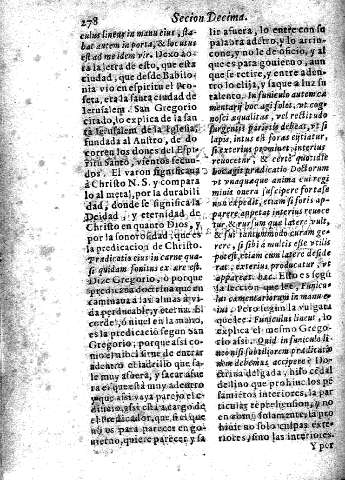 278 Seccion Decima.
culus lineus in manu eius, sta-
bat autem in porta, & locutus
est ad me idem vir. Dexo ao-
ra la letra de esto, que esta
ciudad, que desde Babilo-
nia vio en espiritu el Pro-
feta, era la santa ciudad de
Ierusalem. San Gregorio
citado, lo explica de la san
ta Ierusalem de la Iglesia,
fundada al Austro, de do
corren los dones del Espi-
ritu Santo, vientos fecun-
dos. El varon significaua
à Christo N. S. y compara
lo al metal, por la durabili
dad, donde se significa la
Deidad, y eternidad de
Christo en quanto Dios, y
por la sonoridad, que es
la predicacion de Christo.
Prædicatio eius in carne qua-
si quidam sonitus ex ære est.
Dize Gregorio, ò porque
predicaua doctrina que en
caminaua à las almas à vi-
da perdurable, y eterna. El
cordel, ò nivel en la mano,
es la predicacion segun San
Gregorio; porque assi co-
mo el nibel sirue de entrar
adentro el ladrillo que sa-
le muy afuera, y sacar afue
ra el que està muy adentro
y que assi vaya parejo el e-
dificio, assi està à cargo de
el Predicador, que si el que
no es para parecer en go-
uierno, quiere parecer, y sa
lir afuera, lo entre con su
palabra adetro, y lo arrin-
cone, y no le de oficio, y al
que es para gouierno, aun
que se retire, y entre aden-
tro lo elija, y saque a luz su
talento. In funiculo autem cæ
mentarij hoc agi solet, vt cog-
nosci æqualitas, vel rectitudo
surgentis parietis debeat, vt si
lapis, intus est foras eijciatur,
si exterius prominet, interius
reuocetur, & certè quotidiè
hoc agit prædicatio Doctorum
vt vnaquæque anima cui regi
minis onera suscipere fortasse
non expedit, etiam si foris ap-
parere appetat interius reuoce
tur, & rursum quæ latere vult,
& sui tantummodo curam ge-
rere, si sibi & multis esse vtilis
potest, etiam cum latere deside
rat, exterius producatur, vt
appareat. hæc. Esto es segũ
la leccion que lee, Funicu-
lus cæmentariorum in manu e-
ius. Pero segun la vulgata
que lee: Funiculus lineus, lo
explica el mesmo Gregoo-
rio assi. Quid in funiculo li-
neo nisi subtiliorem prædicatio
nem debemus accipere? Do-
ctrina delgada, hilo cedal
de lino que prohiue los pé
samientos interiores, la par
ticular reprehension, y no
en comun solamente, la pro
hiue no solo culpas exte-
riores, sino las interiores.
Y por